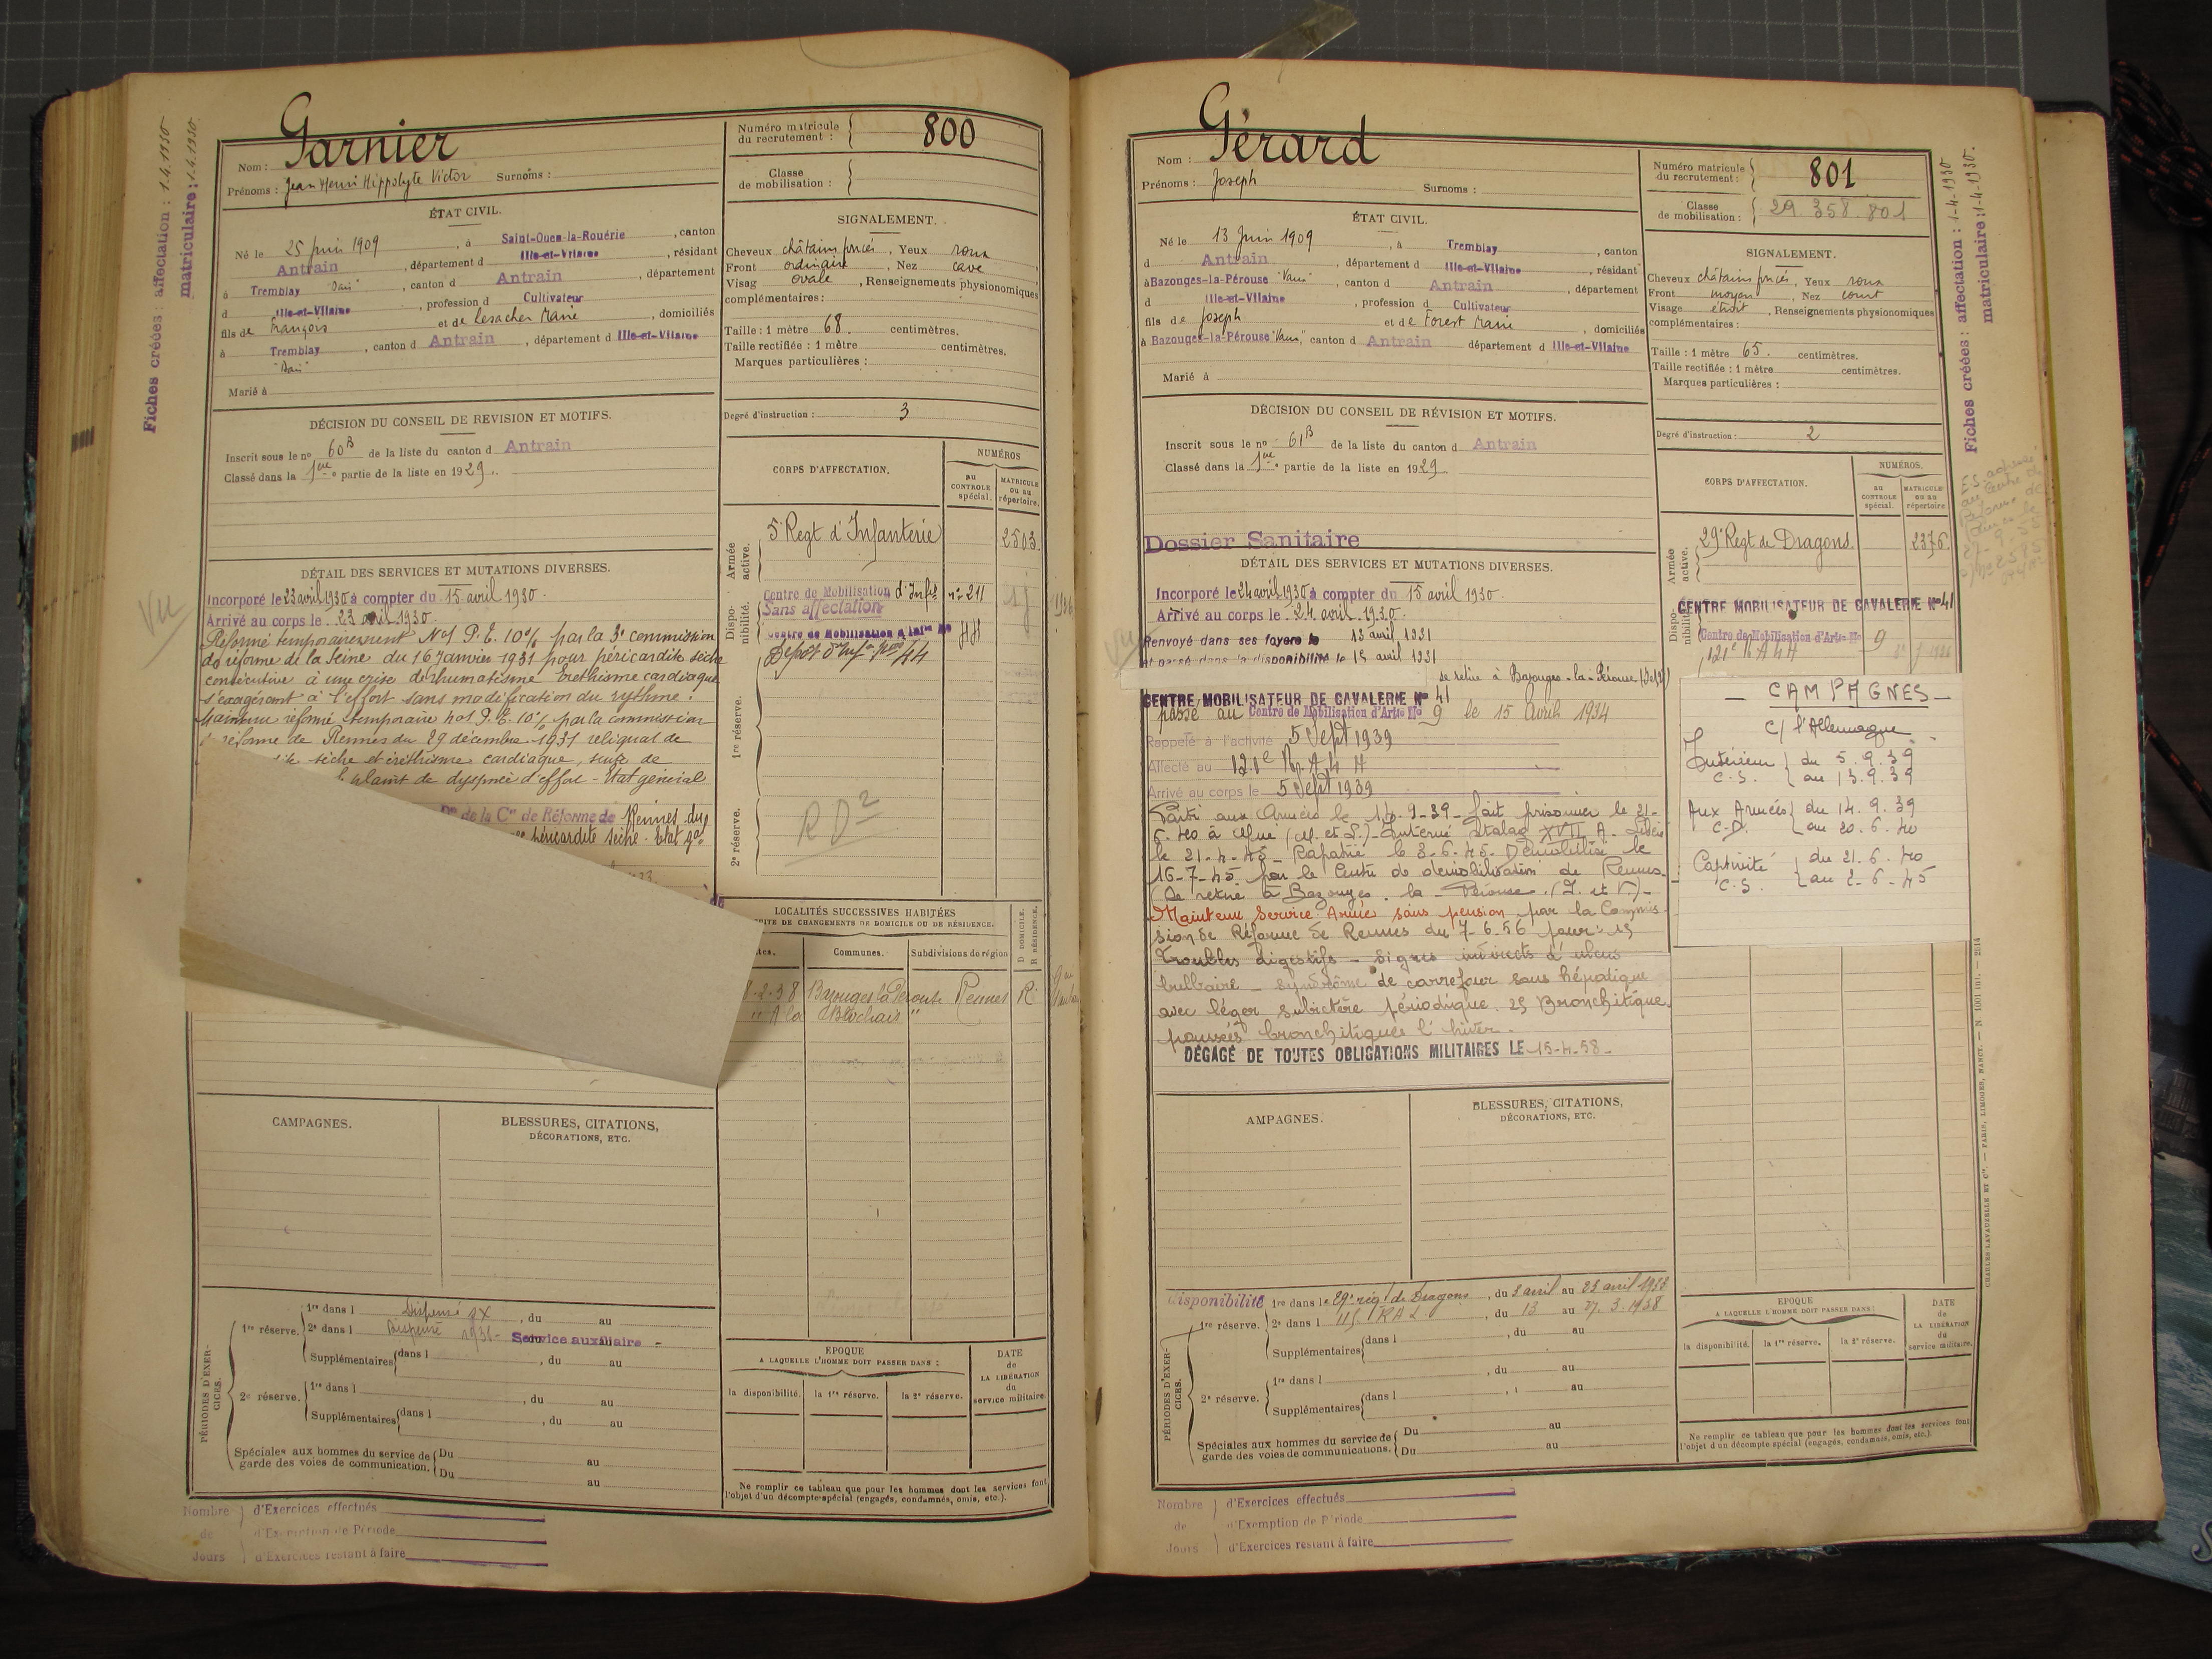 Fiches créées : affectation : 1.4.1930
matriculaire : 1.4.1930.
Nom : Garnier
Prénoms : Jean Henri Hippolyte Victor Surnoms :
Numéro matricule du recrutement : 800
Classe de mobilisation :
ÉTAT CIVIL.
Né le 25 juin 1909, à Saint-Ouen-la-Rouërie, canton
Antrain, département d Ille-et-Vilaine, résidant
à Tremblay, canton d Antrain, département
d Ille-et-Vilaine, profession d Cultivateur
fils de François et de Lesacher Marie, domiciliés
à Tremblay, canton d Antrain, département d Ille-et-Vilaine
Marié à
SIGNALEMENT.
Cheveux châtains foncés, Yeux roux
Front ordinaire, Nez cave
Visag ovale, Renseignements physionomiques
complémentaires :
Taille : 1 mètre 68 centimètres.
Taille rectifiée : 1 mètre centimètres.
Marques particulières :
Degré d'instruction : 3
DÉCISION DU CONSEIL DE REVISION ET MOTIFS.
Inscrit sous le no 60B de la liste du canton d Antrain
Classé dans la 1re partie de la liste en 1929.
CORPS D'AFFECTATION.
NUMÉROS
AU CONTROLE spécial.
MATRICULE ou au répertoire.
Armée active.
5e Regt d'Infanterie 2503.
Disponibilité.
Centre de Mobilisation d'Infie no 211
Sans affectation
Centre de Mobilisation d'Infie No 44
Dépôt d'Infie 44
1re réserve.
2e réserve.
R D2
Vu
DÉTAIL DES SERVICES ET MUTATIONS DIVERSES.
Incorporé le 23 avril 1930 à compter du 15 avril 1930.
Arrivé au corps le 23 avril 1930.
Réformé temporairement No1 P.E. 10% par la 3e commission
de réforme de la Seine du 16 Janvier 1931 pour péricardite sèche
consécutive à une crise de rhumatisme Eréthisme cardiaque
s'exagérant à l'effort sans modification du rythme.
Maintenu réformé temporaire no1 P.E. 10% par la commission
réforme de Rennes du 29 décembre 1931 reliquat de
sèche et éréthisme cardiaque, suite de
plaint de dyspnée d'effort - Etat général
on de la Con de Réforme de Rennes du
péricardite sèche. Etat gal
LOCALITÉS SUCCESSIVES HABITÉES
SUITE DE CHANGEMENTS DE DOMICILE OU DE RÉSIDENCE.
Communes. Subdivisions de région
D DOMICILE. R RÉSIDENCE.
8-2-38 Bazouges la Pérouse Rennes R.
CAMPAGNES.
BLESSURES, CITATIONS,
DÉCORATIONS, ETC.
PÉRIODES D'EXERCICES.
1re réserve. 1re dans l Dispensé, du au
2e dans l Dispensé 1936 - Service auxiliaire
Supplémentaires dans l, du au
2e réserve. 1re dans l, du au
Supplémentaires dans l, du au
Spéciales aux hommes du service de garde des voies de communication. Du au
Du au
EPOQUE
A LAQUELLE L'HOMME DOIT PASSER DANS :
la disponibilité. la 1re réserve. la 2e réserve.
DATE de LA LIBÉRATION du service militaire.
Ne remplir ce tableau que pour les hommes dont les services font
l'objet d'un décompte spécial (engagés, condamnés, omis, etc.).
Nombre d'Exercices effectués
de d'Exemption de Période
Jours d'Exercices restant à faire
Nom : Gérard
Prénoms : Joseph Surnoms :
Numéro matricule du recrutement : 801
Classe de mobilisation : 29.358.801
Fiches créées : affectation : 1-4-1930
matriculaire : 1-4-1930.
ÉTAT CIVIL.
Né le 13 Juin 1909, à Tremblay, canton
d Antrain, département d Ille-et-Vilaine, résidant
à Bazouges-la-Pérouse, canton d Antrain, département
d Ille-et-Vilaine, profession d Cultivateur
fils de Joseph et de Forest Marie, domiciliés
à Bazouges-la-Pérouse, canton d Antrain département d Ille-et-Vilaine
Marié à
SIGNALEMENT.
Cheveux châtains foncés, Yeux roux
Front moyen, Nez court
Visage étroit, Renseignements physionomiques
complémentaires :
Taille : 1 mètre 65. centimètres.
Taille rectifiée : 1 mètre centimètres.
Marques particulières :
Degré d'instruction : 2
DÉCISION DU CONSEIL DE RÉVISION ET MOTIFS.
Inscrit sous le no 61B de la liste du canton d Antrain
Classé dans la 1re partie de la liste en 1929
CORPS D'AFFECTATION.
NUMÉROS.
AU CONTROLE spécial.
MATRICULE ou au répertoire
Armée active.
29e Regt de Dragons. 2376.
Disponibilité.
CENTRE MOBILISATEUR DE CAVALERIE No 41
Centre de Mobilisation d'Artie No 9
121e R A L H
Dossier Sanitaire
DÉTAIL DES SERVICES ET MUTATIONS DIVERSES.
Incorporé le 24 avril 1930 à compter du 15 avril 1930.
Arrivé au corps le 24 avril 1930.
Renvoyé dans ses foyers le 13 avril 1931
et passé dans la disponibilité le 15 avril 1931
se retire à Bazouges-la-Pérouse (I et V)
CENTRE MOBILISATEUR DE CAVALERIE No 41
passé au Centre de Mobilisation d'Artie No 9 le 15 Avril 1934
Rappelé à l'activité 5 Sept 1939
Affecté au 121e Rg A L H
Arrivé au corps le 5 Sept 1939
Parti aux Armées le 14-9-39 - fait prisonnier le 21-
6-40 à (M. et L.) - Interné Stalag XVII A - Libéré
le 21-4-45 - Rapatrié le 3-6-45. Démobilisé le
16-7-45 par le Centre de démobilisation de Rennes.
(Se retire à Bazouges-la-Pérouse (I. et V)-
Maintenu Service Armé sans pension par la Commis-
sion de Réforme de Rennes du 7-6-56 pour : 1)
Troubles digestifs - signes indirects d'ulcus
bulbaire - syndrôme de carrefour sous hépatique
avec léger subictère périodique. 2) Bronchitique.
poussées bronchitiques l'hiver.
DÉGAGÉ DE TOUTES OBLIGATIONS MILITAIRES LE 15-4-58-
- CAMPAGNES -
C/ l'Allemagne
Intérieur du 5.9.39
C.S. au 13.9.39
Aux Armées du 14.9.39
C.D. au 20.6.40
Captivité du 21.6.40
C.S. au 2-6-45
AMPAGNES.
BLESSURES, CITATIONS,
DÉCORATIONS, ETC.
PÉRIODES D'EXERCICES.
disponibilité 1re dans le 29e rég. de Dragons, du 3 avril au 23 avril 1933
1re réserve. 2e dans l, du 13 au 27.3.1938
Supplémentaires dans l, du au
, du au
2e réserve. 1re dans l au
Supplémentaires dans l
Spéciales aux hommes du service de garde des voies de communications. Du au
Du au
EPOQUE
A LAQUELLE L'HOMME DOIT PASSER DANS :
la disponibilité. la 1re réserve. la 2e réserve.
DATE de LA LIBÉRATION du service militaire.
Ne remplir ce tableau que pour les hommes dont les services font
l'objet d'un décompte spécial (engagés, condamnés, omis, etc.).
CHARLES-LAVAUZELLE ET Cie. — PARIS, LIMOGES, NANCY.
Nombre d'Exercices effectués
de d'Exemption de Période
Jours d'Exercices restant à faire